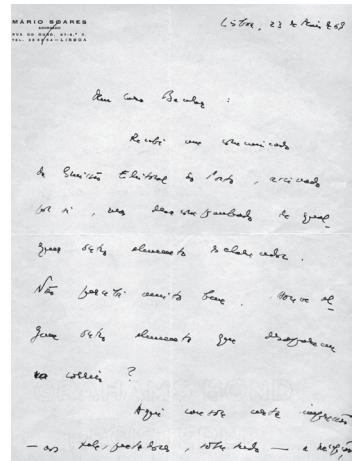 MÁRIO SOARES
ADVOGADO
RUA DO OURO, 87-2.º C.
TEL. LISBOA
Lisboa, 23 de Maio 69
Meu caro :
Recebi um comunicado
da Comissão Eleitoral do Porto, assinado
por si, mas desacompanhado de qual-
quer outro elemento esclarecedor.
Não percebi muito bem. Houve al-
gum outro elemento que desapareceu
no correio ?
Aqui certa impressão
— aos , sobretudo — a